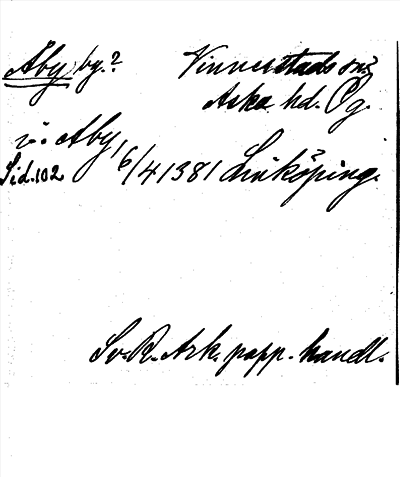 Åby by.? Vinnerstads sn?
Aska hd. Ög.
i: Aby, 6/4 1381 Linköping.
Sid. 102
Sv. R. Ark. papp. handl.